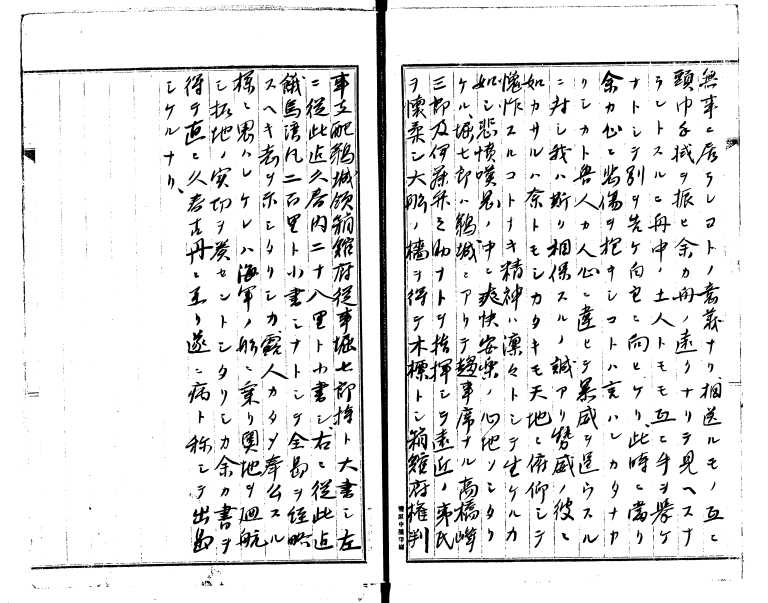 無事ニ居ラレヨトノ意義ナリ相送ルモノ互ニ
頭巾手拭ヲ振ヒ余カ舟ノ遠クナリテ見ヘスナ
ラントスルニ舟中ノ土人トモモ互ニ手ヲ挙ケ
ナトシテ別ヲ告ケ向ニ向ヒケリ此時ニ當リ
余カ心ニ悲傷ヲ抱キシコトハ言ハレカタナカ
リシカトモ魯人カ人心ニ違ヒテ暴威ヲ逞ウスル
ニ対シ我ハ斯ク相保スルノ誠アリ勢威ノ彼ニ
如カサルハ奈トモシカタキモ天地ニ俯仰シテ
愧怍スルコトナキ精神ハ凛々トシテ生ケルカ
如シ悲憤嘆息ノ中ニ爽快安楽ノ心地ノシタリ
ケル、堀七郎ハ鵜城ニアリテ趨事席ナル高橋峰
三郎及伊藤弥三助ナトヲ指揮シテ遠近ノ事民
ヲ懐柔シ大船ノ檣ヲ得テ木標トシ箱館府権判
事支配鵜城領箱館府従事堀七郎持ト大書シ左
ニ従此近久春内二十八里ト小書シ右ニ従此近
餓馬湾凡二百里ト小書シナトシテ全島ヲ経略
スヘキ志ヲ示シタリシカ露人カタダ奉公スル
様ニ思ハレケレハ海軍ノ船ニ乗リ輿地ヲ廻航
シ拓地ノ実功ヲ奏セントシタリシカ余カ書ヲ
得テ直ニ久春古丹ニ至リ遂ニ病ト称シテ出島
シケルナリ、